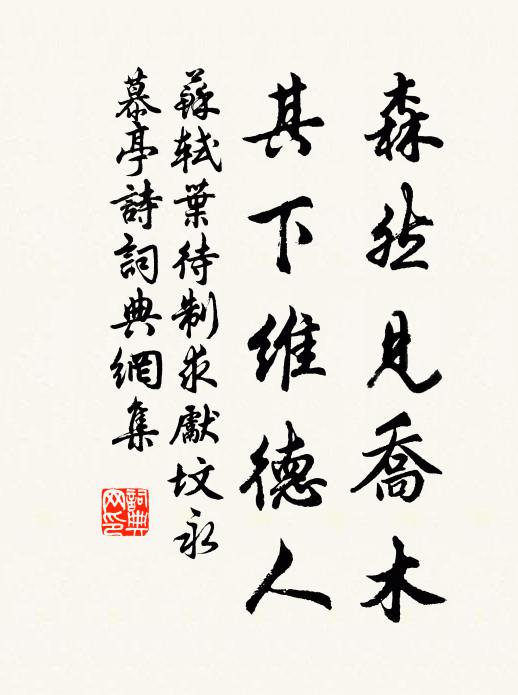 森然見喬木
其下維德人
蘇軾葉待制求獻坟永
慕亭詩詞典網集
詞典
网印